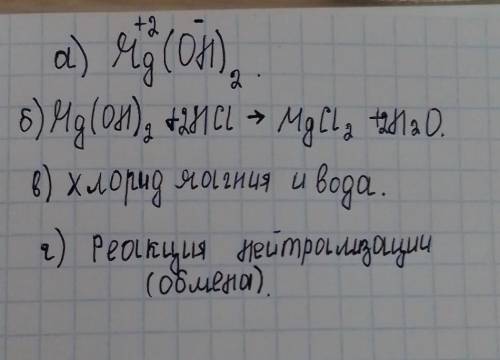 а) Mg⁺²(OH)⁻₂.
б) Mg(OH)₂ + 2HCl → MgCl₂ + 2H₂O.
в) хлорид магния и вода.
г) реакция нейтрализации
(обмена).